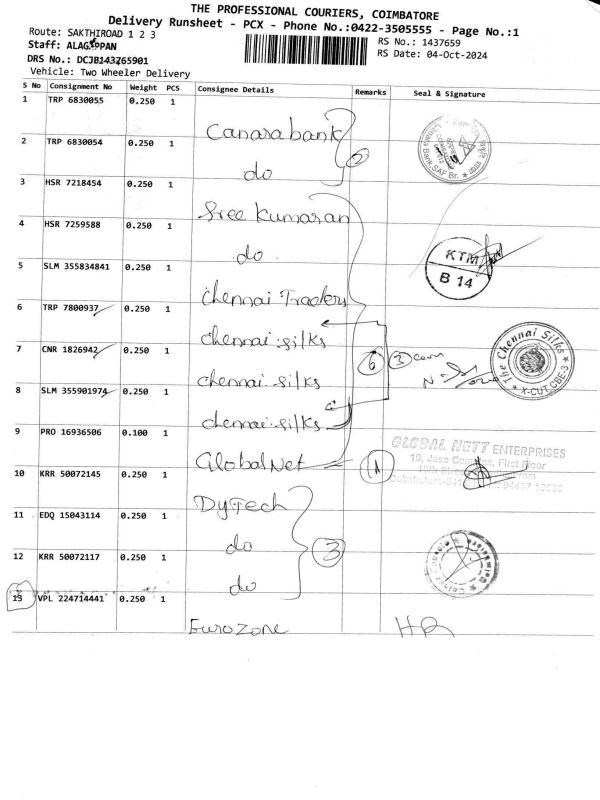 THE PROFESSIONAL COURIERS, COIMBATORE
Delivery Runsheet - PCX - Phone No.:0422-3505555 - Page No.:1
Route: SAKTHIROAD 1 2 3
RS No.: 1437659
Staff: ALAGAPPAN
RS Date: 04-Oct-2024
DRS No.: DCJB143765901
Vehicle: Two Wheeler Delivery
S No Consignment No Weight PCS Consignee Details Remarks Seal & Signature
1 TRP 6830055 0.250 1
Canara bank
2 TRP 6830054 0.250 1
do
2
3 HSR 7218454 0.250 1
Sree Kumaran
4 HSR 7259588 0.250 1
do
KTM
B 14
5 SLM 355834841 0.250 1
Chennai Traders
6 TRP 7800937 0.250 1
chennai silks
7 CNR 1826942 0.250 1
chennai silks
6 3
The Chennai Silks
X-CUT-CBE-3
8 SLM 355901974 0.250 1
chennai silks
9 PRO 16936506 0.100 1
Global Net
1
GLOBAL NETT ENTERPRISES
First Floor
10 KRR 50072145 0.250 1
DyTech
11 EDQ 15043114 0.250 1
do
3
12 KRR 50072117 0.250 1
do
13 VPL 224714441 0.250 1
EuroZone